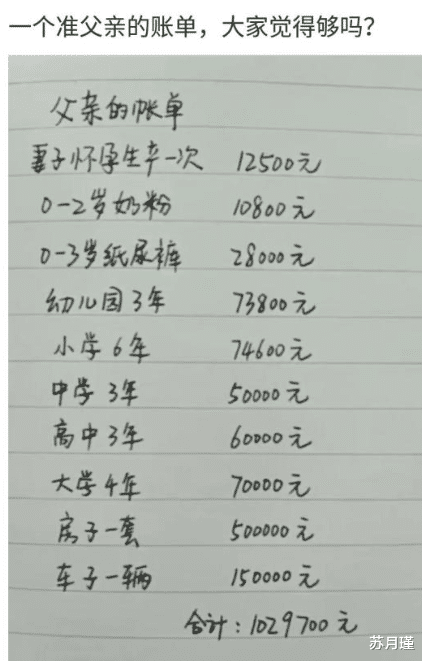 一个准父亲的账单，大家觉得够吗？
父亲的帐单
妻子怀孕生产一次 12500元
0-2岁奶粉 10800元
0-3岁纸尿裤 28000元
幼儿园3年 73800元
小学6年 74600元
中学3年 50000元
高中3年 60000元
大学4年 70000元
房子一套 500000元
车子一辆 150000元
合计：1029700元
苏月瑾